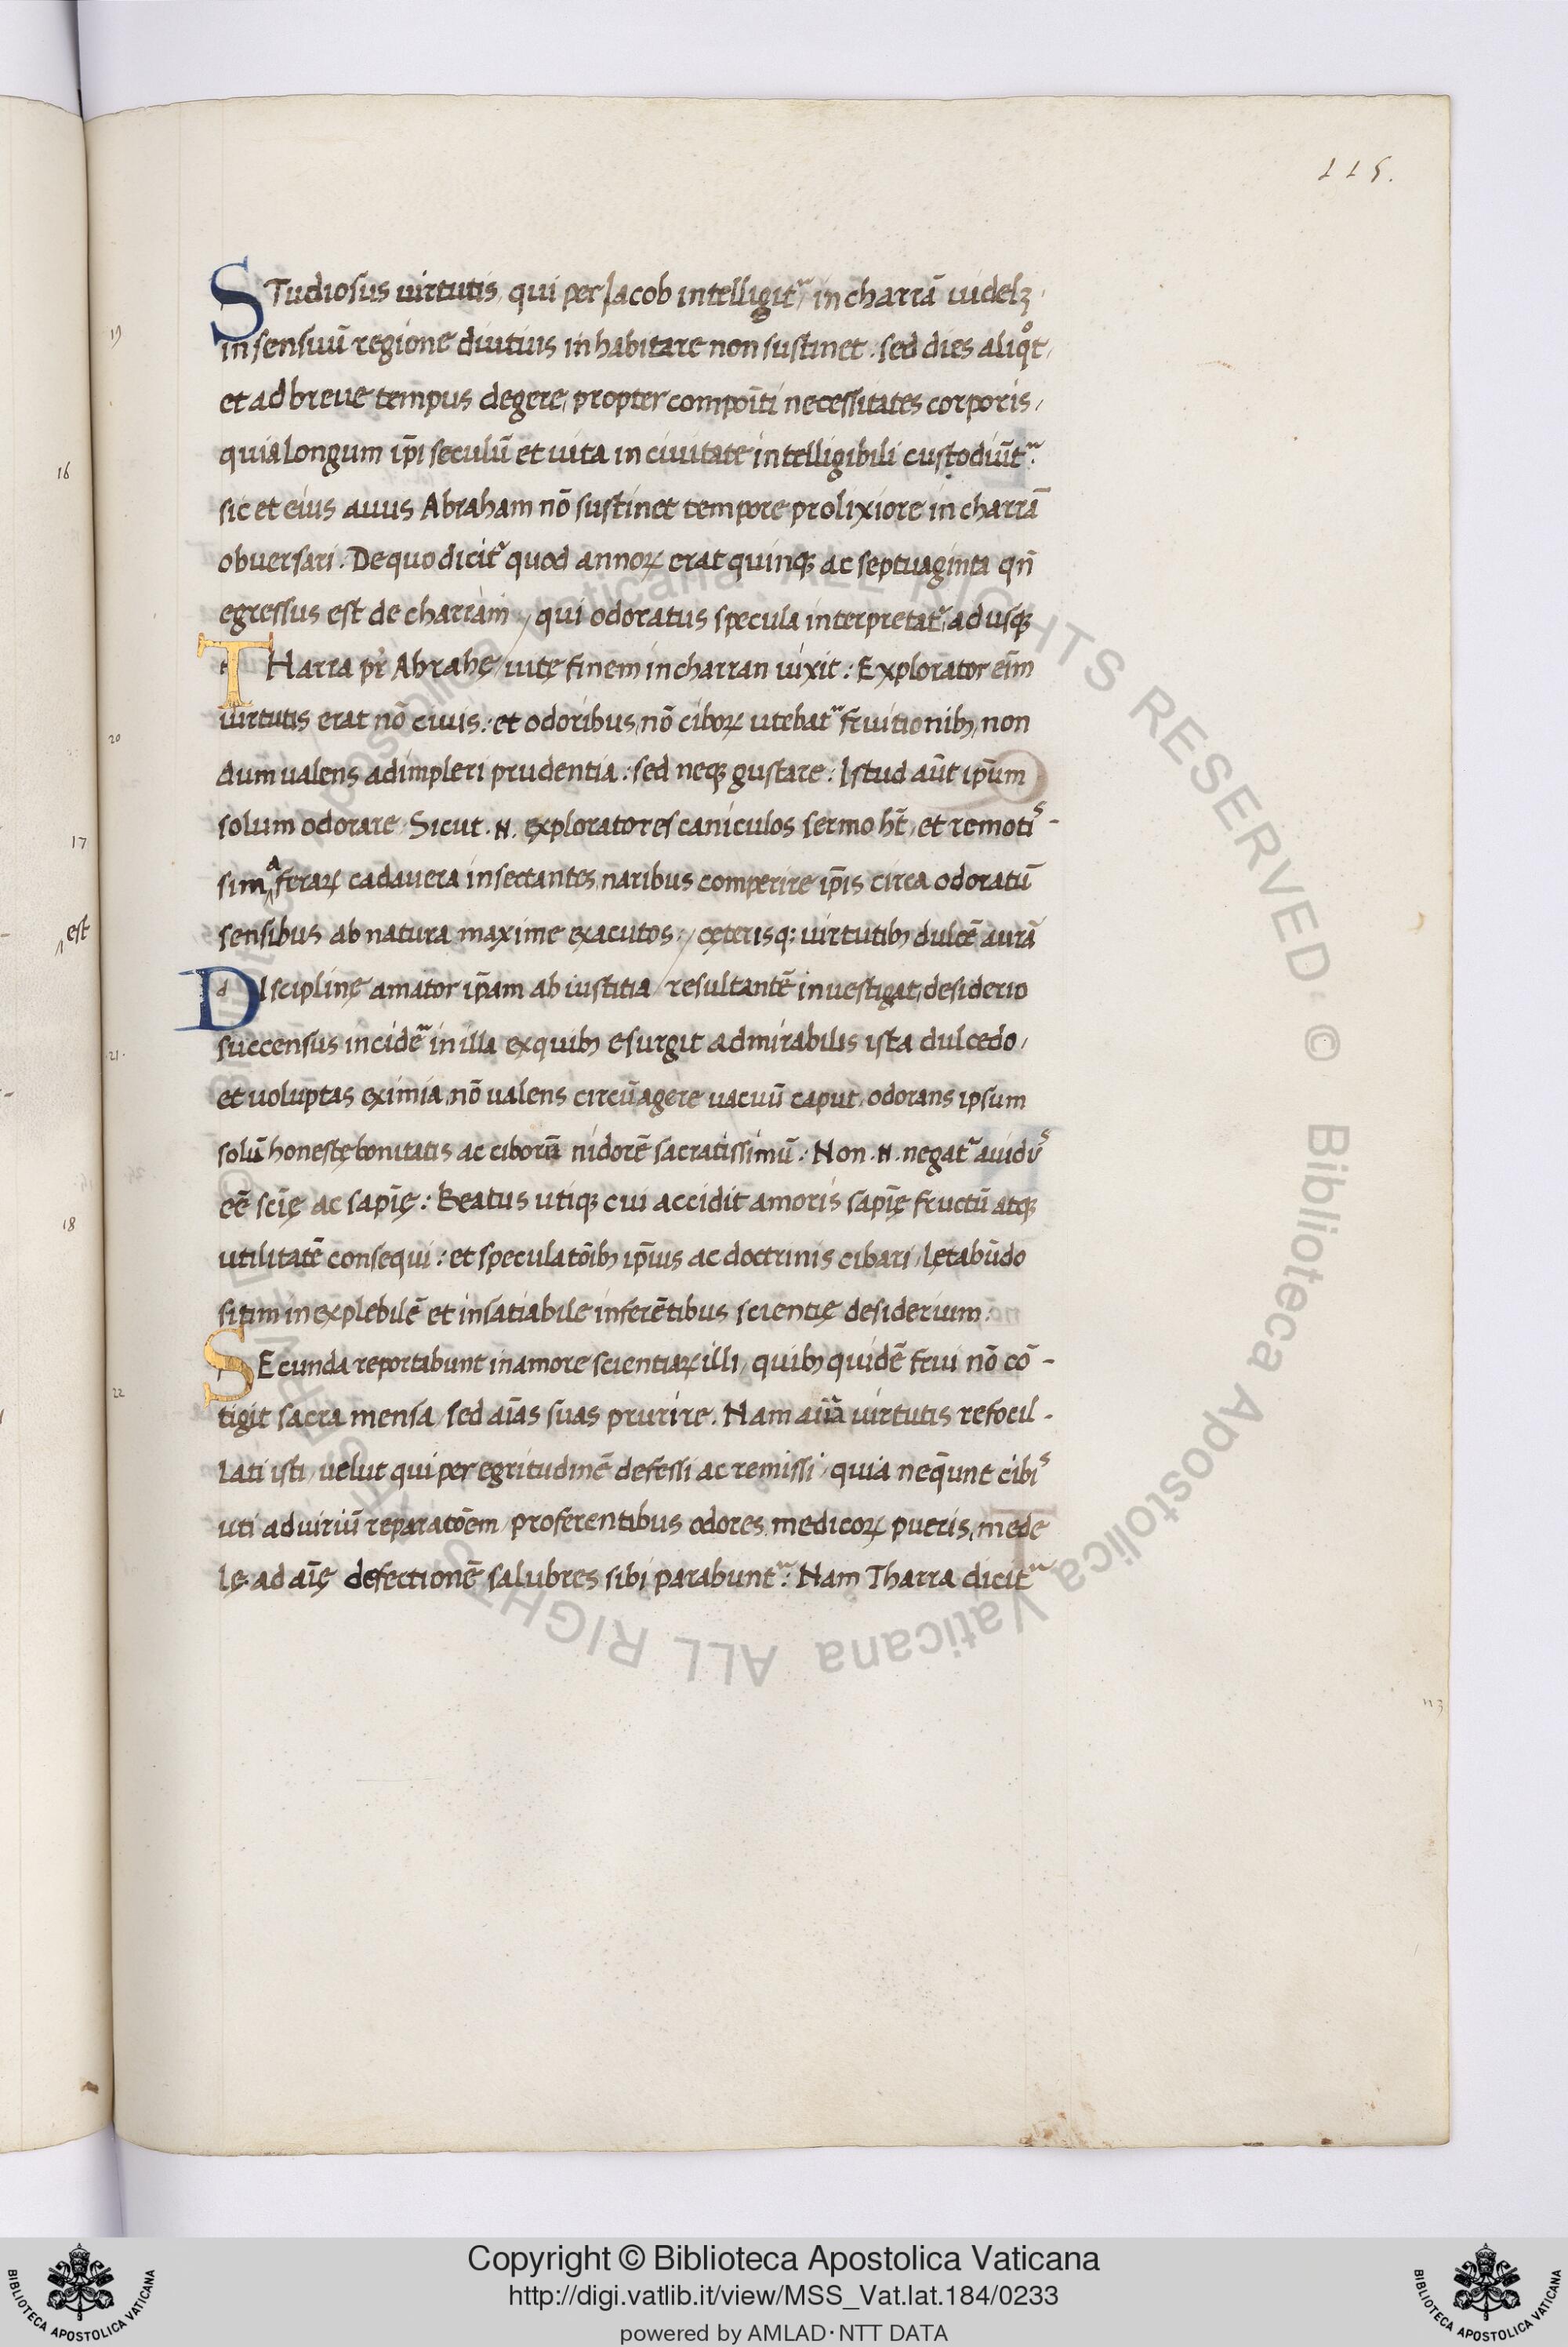 115.
STudiosus uirtutis, qui per Jacob intelligit᷑, in charrā uidelꝫ
19
in sensuū regione diutius inhabitare non sustinet. sed dies aliqͦt,
et ad breue tempus degere, propter compoīti necessitates corporis,
quia longum ip̄i seculū et uita in ciuitate intelligibili custodiūt᷑:
16
sic et eius auus Abraham nō sustinet tempore prolixiore in charrā
obuersari. De quo dicit᷑ quod annoꝝ erat quinqꝫ ac septuaginta qn̄
egressus est de charram, qui odoratus specula interpretat᷑, ad usqꝫ
THarra pr̄ Abrahę, uitę finem in charran uixit: Explorator eīm
uirtutis erat nō ciuis: et odoribus, nō ciboꝝ utebat᷑ fruitionibꝫ, non
20
dum ualens adimpleri prudentia: sed neqꝫ gustare: Istud aūt ip̄um
solum odorare. Sicut .N. exploratores caniculos sermo ht̄, et remotiˢ-
17
sima feraꝝ cadauera insectantes, naribus comperire ip̄is circa odoratū
sensibus ab natura maxime exacutos: cęterisq: uirtutibꝫ dulcē aurā
est
DIsciplinę amator ip̄am ab iustitia resultantē inuestigat, desiderio
succensus incidē᷑ in illa ex quibꝫ esurgit admirabilis ista dulcedo,
21.
et uoluptas eximia, nō ualens circūagere uacuū caput, odorans ipsum
solū honestę bonitatis ac ciborū nidorē sacratissimū: Non .N. negat᷑ auidꝰ
eē scīę ac sapīę: Beatus utiqꝫ cui accidit amoris sapīę fructū atqꝫ
18
utilitatē consequi: et speculatōibꝫ ip̄ius ac doctrinis cibari, lętabūdo
sitim inexplebilē et insatiabile inferētibus scientię desiderium:
SEcunda reportabunt in amore scientiaꝝ illi, quibꝫ quidē frui nō cō-
22
tigit sacra mensa, sed aīas suas prurire. Nam aurā uirtutis refocil-
lati isti, uelut qui per egritudinē defessi ac remissi, quia neq̄unt cibiˢ
uti ad uiriū reparatōem, proferentibus odores, medicoꝝ pueris, mede
lę ad aīę defectionē salubres sibi parabunt᷑: Nam Tharra dicit᷑
113
Copyright © Biblioteca Apostolica Vaticana
http://digi.vatlib.it/view/MSS_Vat.lat.184/0233
powered by AMLAD·NTT DATA
BIBLIOTECA APOSTOLICA VATICANA
BIBLIOTECA APOSTOLICA VATICANA
© Biblioteca Apostolica Vaticana ALL RIGHTS RESERVED